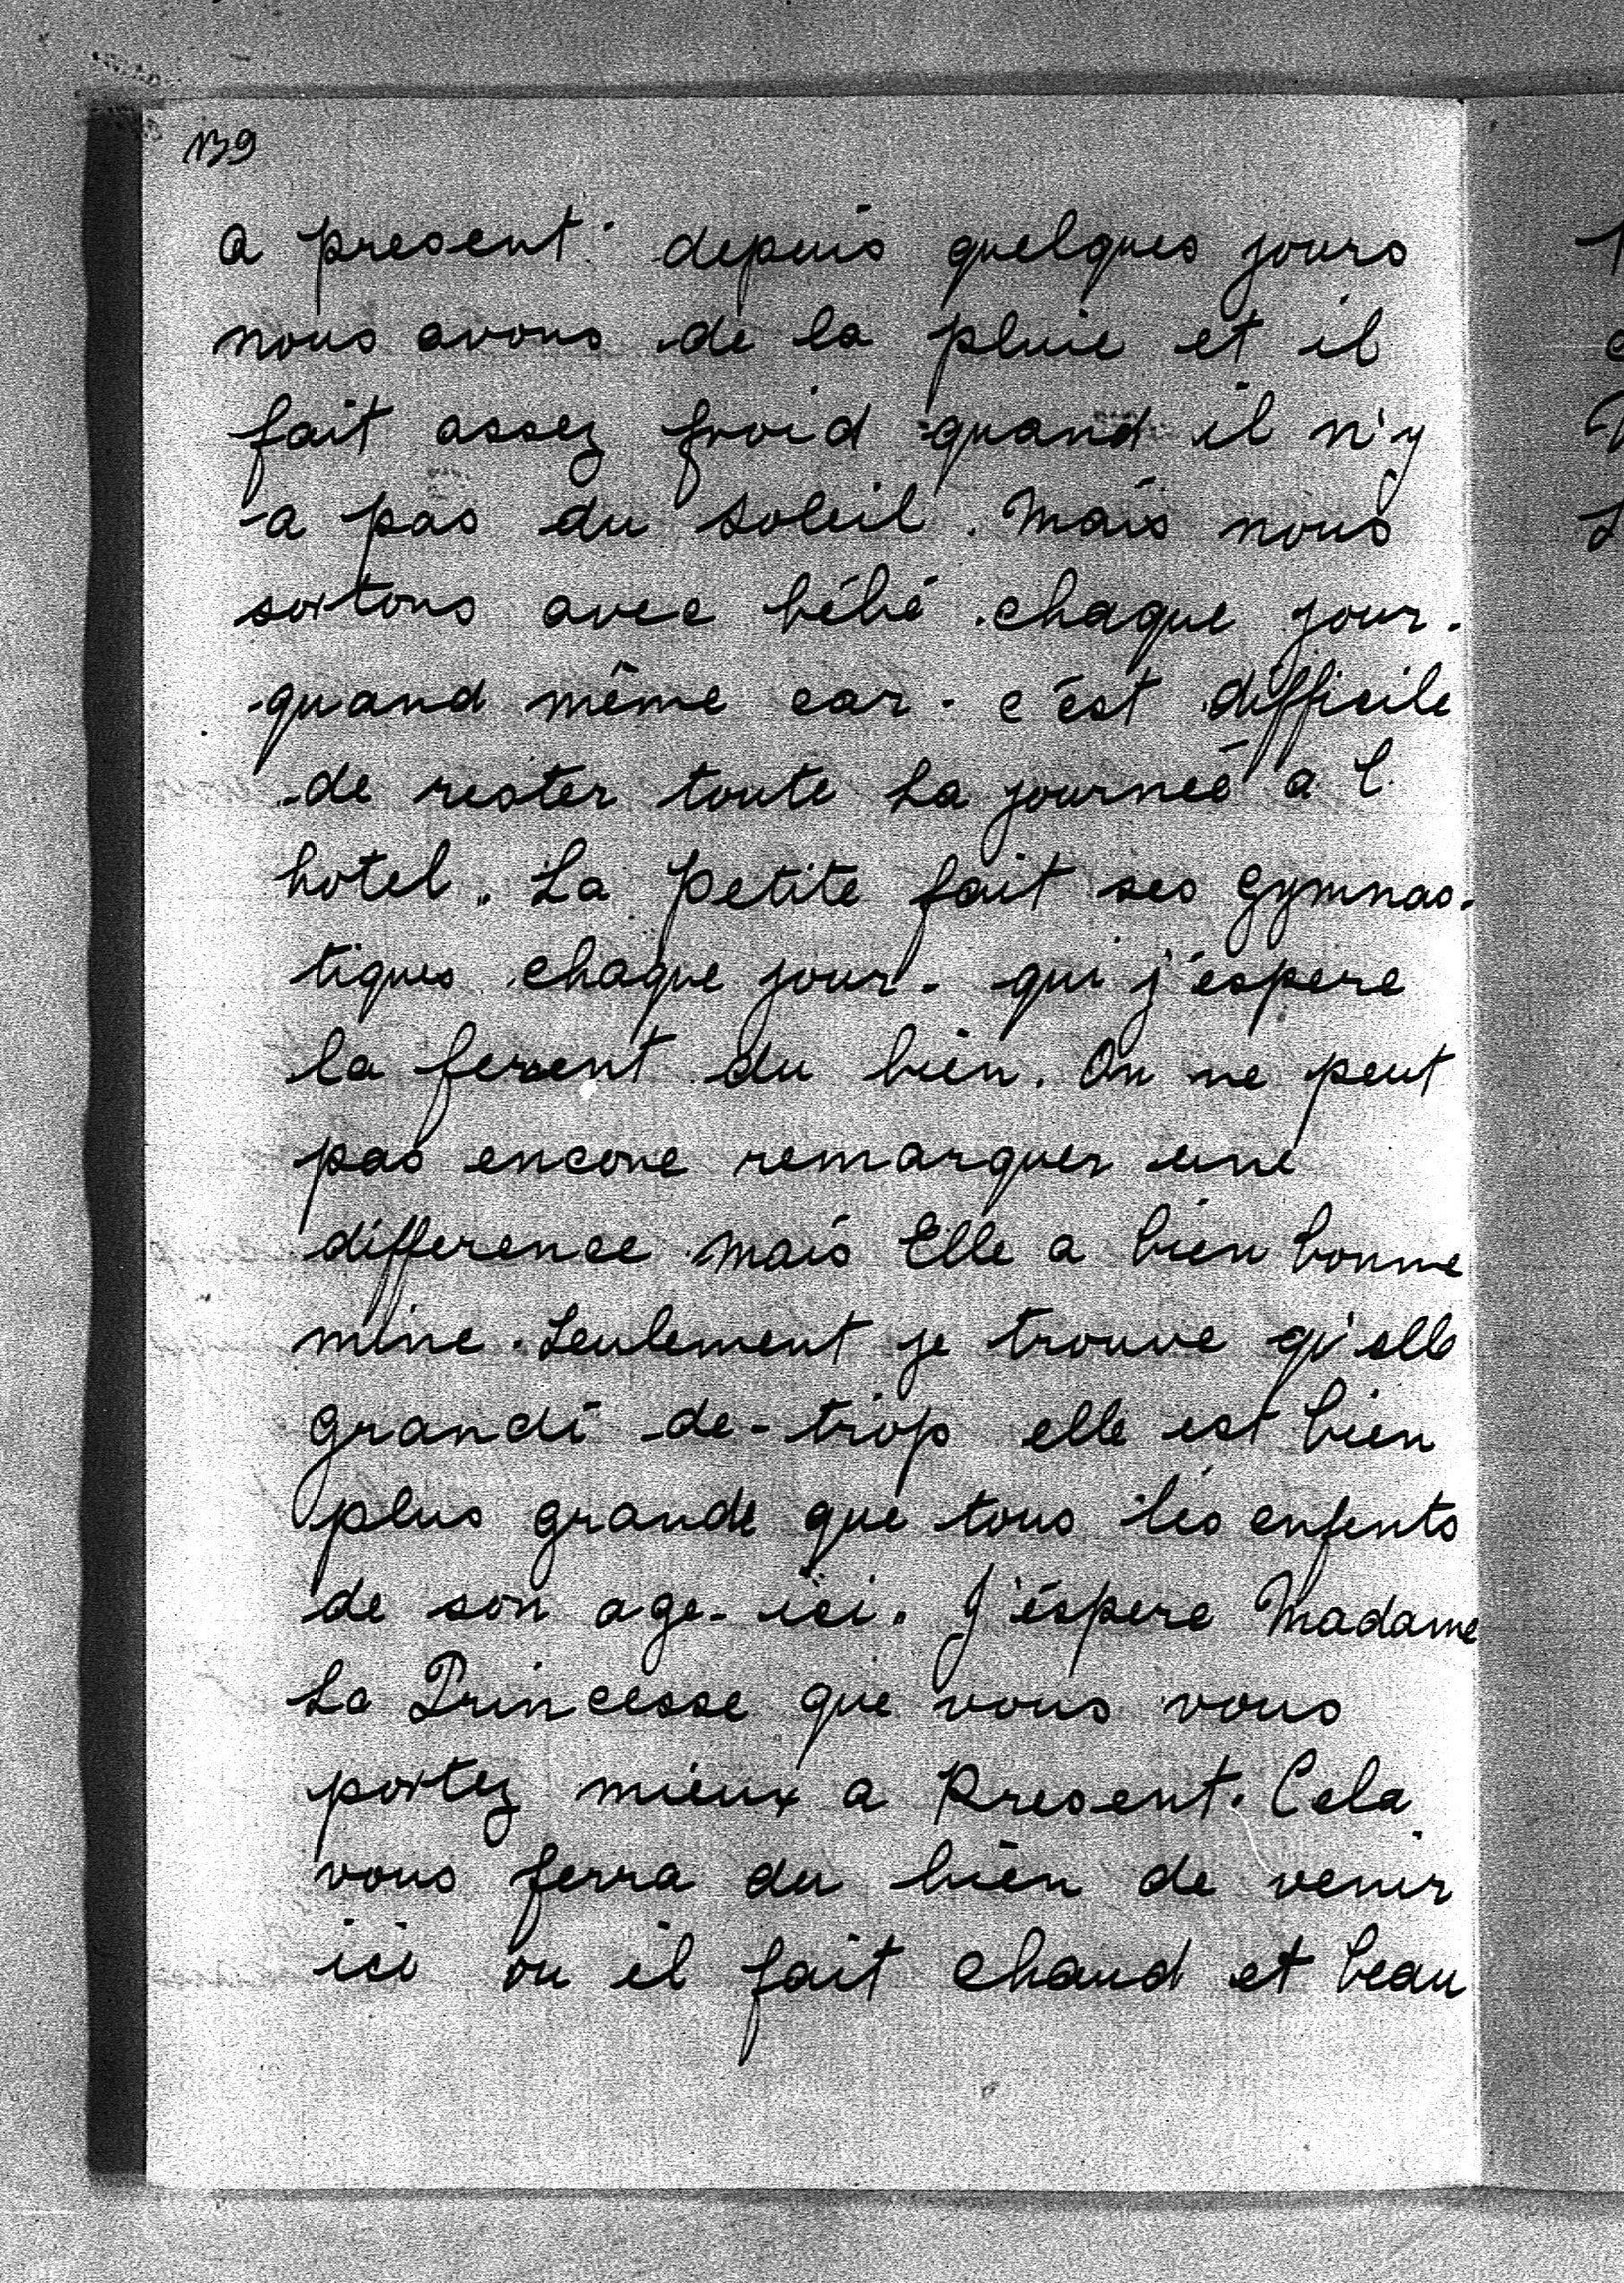 139
a present. depuis quelques jours
nous avons de la pluie et il
fait assez froid quand il n'y
a pas du soleil. Mais nous
sortons avec bébé chaque jour.
quand même car. c'est difficile
de rester toute la journeé a l'
hotel. La petite fait ses gymnas-
tiques chaque jour. qui j'espere
la ferent du bien. On ne peut
pas encore remarquer une
difference mais Elle a bien bonne
mine. Seulement je trouve qu'elle
grandi de-trop elle est bien
plus grande que tous les enfents
de son age- ici. J'éspere Madame
La Princesse que vous vous
portez mieux a Present. Cela
vous ferra du bien de venir
ici ou il fait chaud et beau